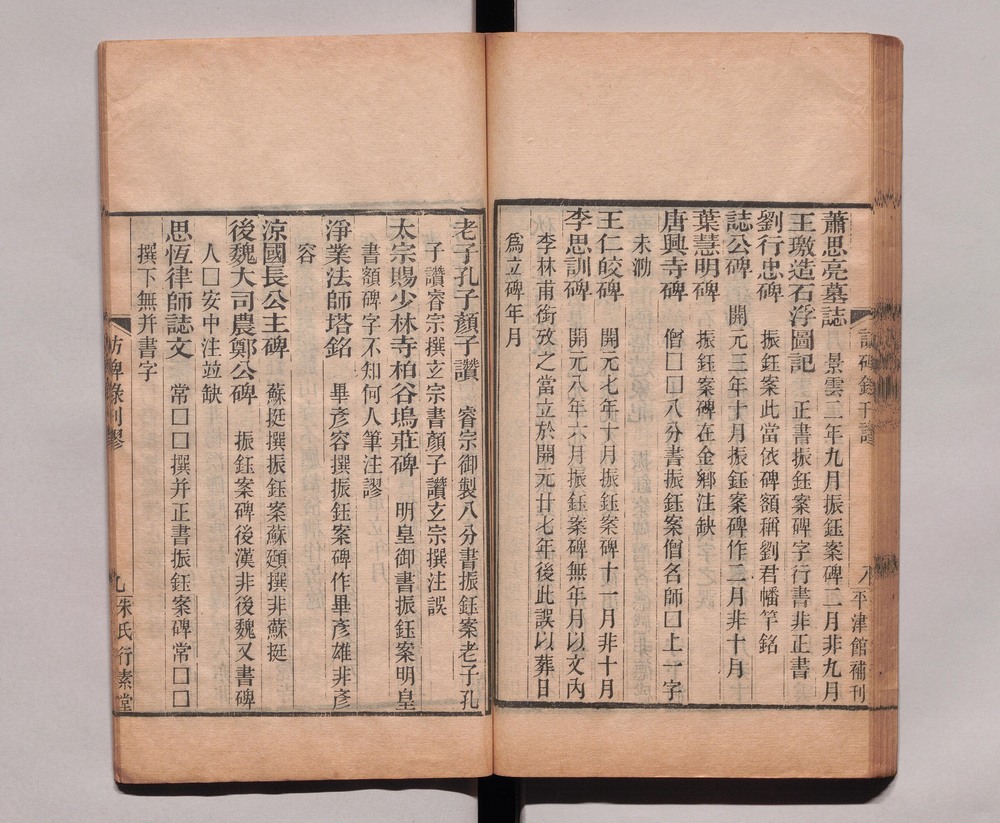 蕭思亮墓誌　景雲二年九月振鈺案碑二月非九月
王璬造石浮圖記　正書振鈺案碑字行書非正書
劉行忠碑　振鈺案此當依碑額稱劉君幡竿銘
誌公碑　開元三年十月振鈺案碑作二月非十月
葉慧明碑　振鈺案碑在金鄉注缺
唐興寺碑　僧囗囗八分書振鈺案僧名師囗上一字
未泐
王仁皎碑　開元七年十月振鈺案碑十一月非十月
李思訓碑　開元八年六月振鈺案碑無年月以文內
李林甫銜攷之當立於開元廿七年後此誤以葬日
爲立碑年月
平津館補刊
老子孔子顏子讚　睿宗御製八分書振鈺案老子孔
子讚睿宗撰玄宗書顏子讚玄宗撰注誤
太宗賜少林寺柏谷塢莊碑　明皇御書振鈺案明皇
書額碑字不知何人筆注謬
淨業法師塔銘　畢彥容撰振鈺案碑作畢彥雄非彥
容
涼國長公主碑　蘇挺撰振鈺案蘇頲撰非蘇挺
後魏大司農鄭公碑　振鈺案碑後漢非後魏又書碑
人囗安中注竝缺
思恆律師誌文　常囗囗撰并正書振鈺案碑常囗囗
撰下無并書字
訪碑錄刊謬　九　朱氏行素堂